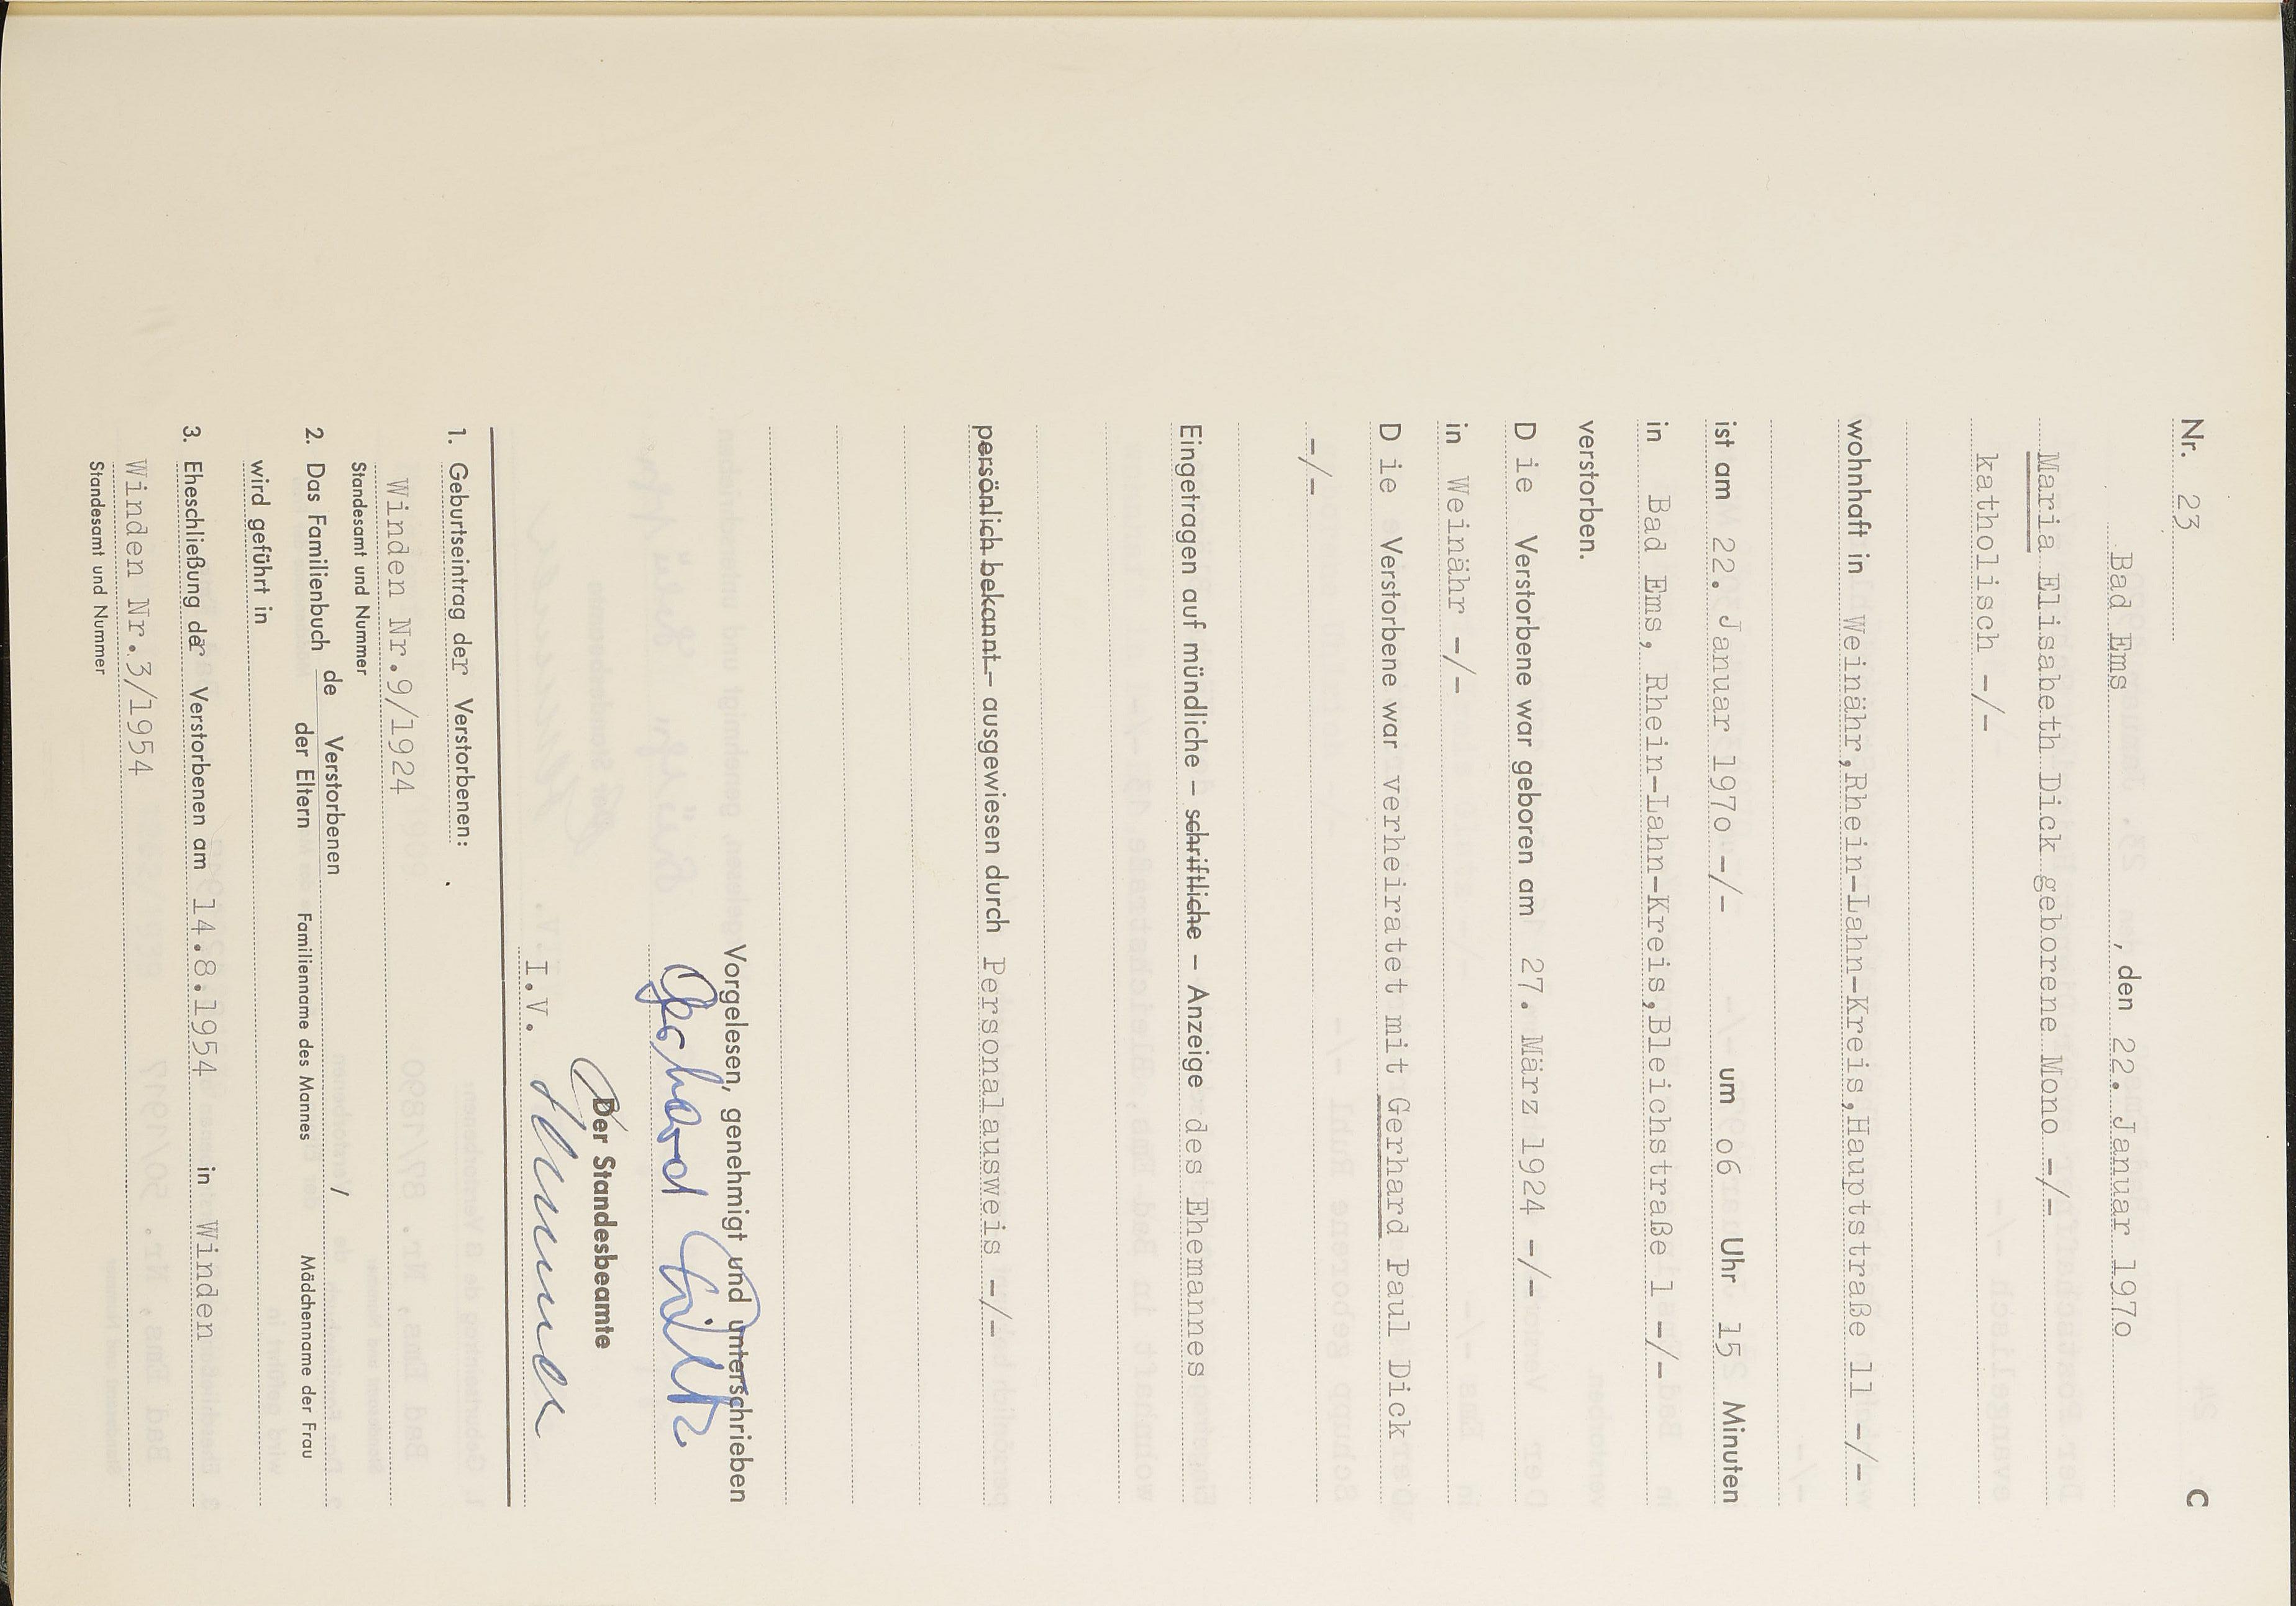 Nr. 23 C
Bad Ems, den 22. Januar 197o
Maria Elisabeth Dick geborene Mono -/-
katholisch -/-
wohnhaft in Weinähr,Rhein-Lahn-Kreis,Hauptstraße 11 -/-
ist am 22. Januar 197o -/- um o6 Uhr 15 Minuten
in Bad Ems, Rhein-Lahn-Kreis,Bleichstraße 1 -/-
verstorben.
D ie Verstorbene war geboren am 27. März 1924 -/-
in Weinähr -/-
D ie Verstorbene war verheiratet mit Gerhard Paul Dick
-/-
Eingetragen auf mündliche – schriftliche – Anzeige des Ehemannes
persönlich bekannt – ausgewiesen durch Personalausweis -/-
Vorgelesen, genehmigt und unterschrieben
Gerhard
Der Standesbeamte
I.V.
1. Geburtseintrag der Verstorbenen:
Winden Nr.9/1924
Standesamt und Nummer
2. Das Familienbuch de Verstorbenen /
der Eltern Familienname des Mannes Mädchenname der Frau
wird geführt in
3. Eheschließung der Verstorbenen am 14.8.1954 in Winden
Winden Nr.3/1954
Standesamt und Nummer